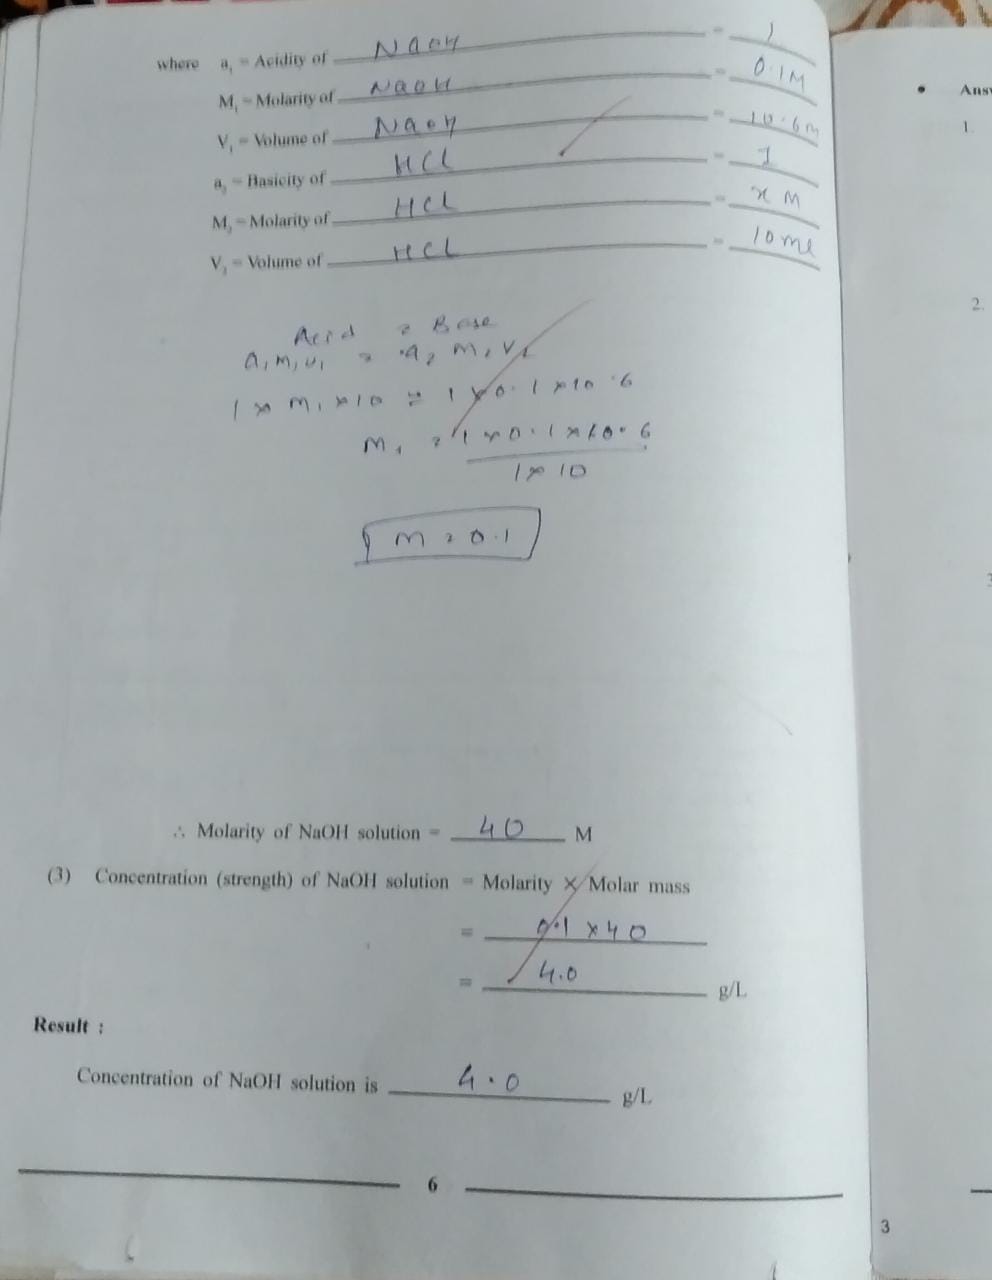 where a₁ = Acidity of NaOH = 1
M₁ = Molarity of NaOH = 0.1M
V₁ = Volume of NaOH = 10.6m
a₂ = Basicity of HCl = 1
M₂ = Molarity of HCl = x M
V₂ = Volume of HCl = 10ml
Acid = Base
a₁ m₁ v₁ = a₂ m₂ v₂
1 × m₁ × 10 = 1 × 0.1 × 10.6
m₁ = 1 × 0.1 × 10.6
1 × 10
m = 0.1
∴ Molarity of NaOH solution = 40 M
(3) Concentration (strength) of NaOH solution = Molarity × Molar mass
= 0.1 × 40
= 4.0 g/L
Result :
Concentration of NaOH solution is 4.0 g/L
6
• Ans
1.
2.
3